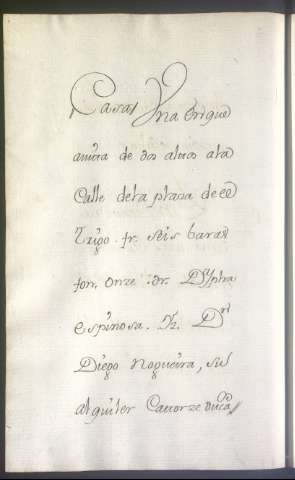 Casa, Vna en que
auita de dos altos a la
Calle de la plaza de el
Trigo. fr. seis baras
fon. onze. dr. Dn
espinosa. Yz. Dn
Diego Nogueira, su
alquiler Catorze duca